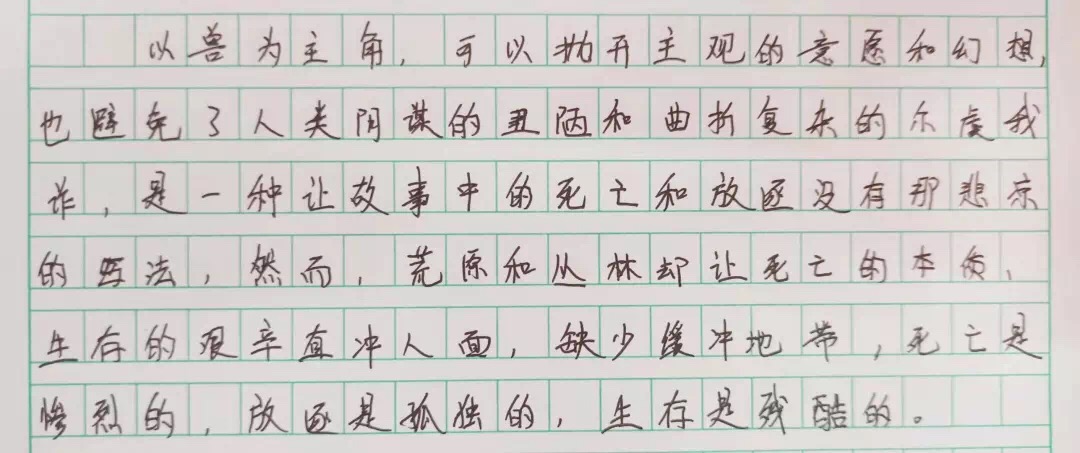 以兽为主角，可以抛开主观的意愿和幻想，
也避免了人类阴谋的丑陋和曲折复杂的尔虞我
诈，是一种让故事中的死亡和放逐没有那悲凉
的写法，然而，荒原和丛林却让死亡的本质、
生存的艰辛直冲人面，缺少缓冲地带，死亡是
惨烈的，放逐是孤独的，生存是残酷的。